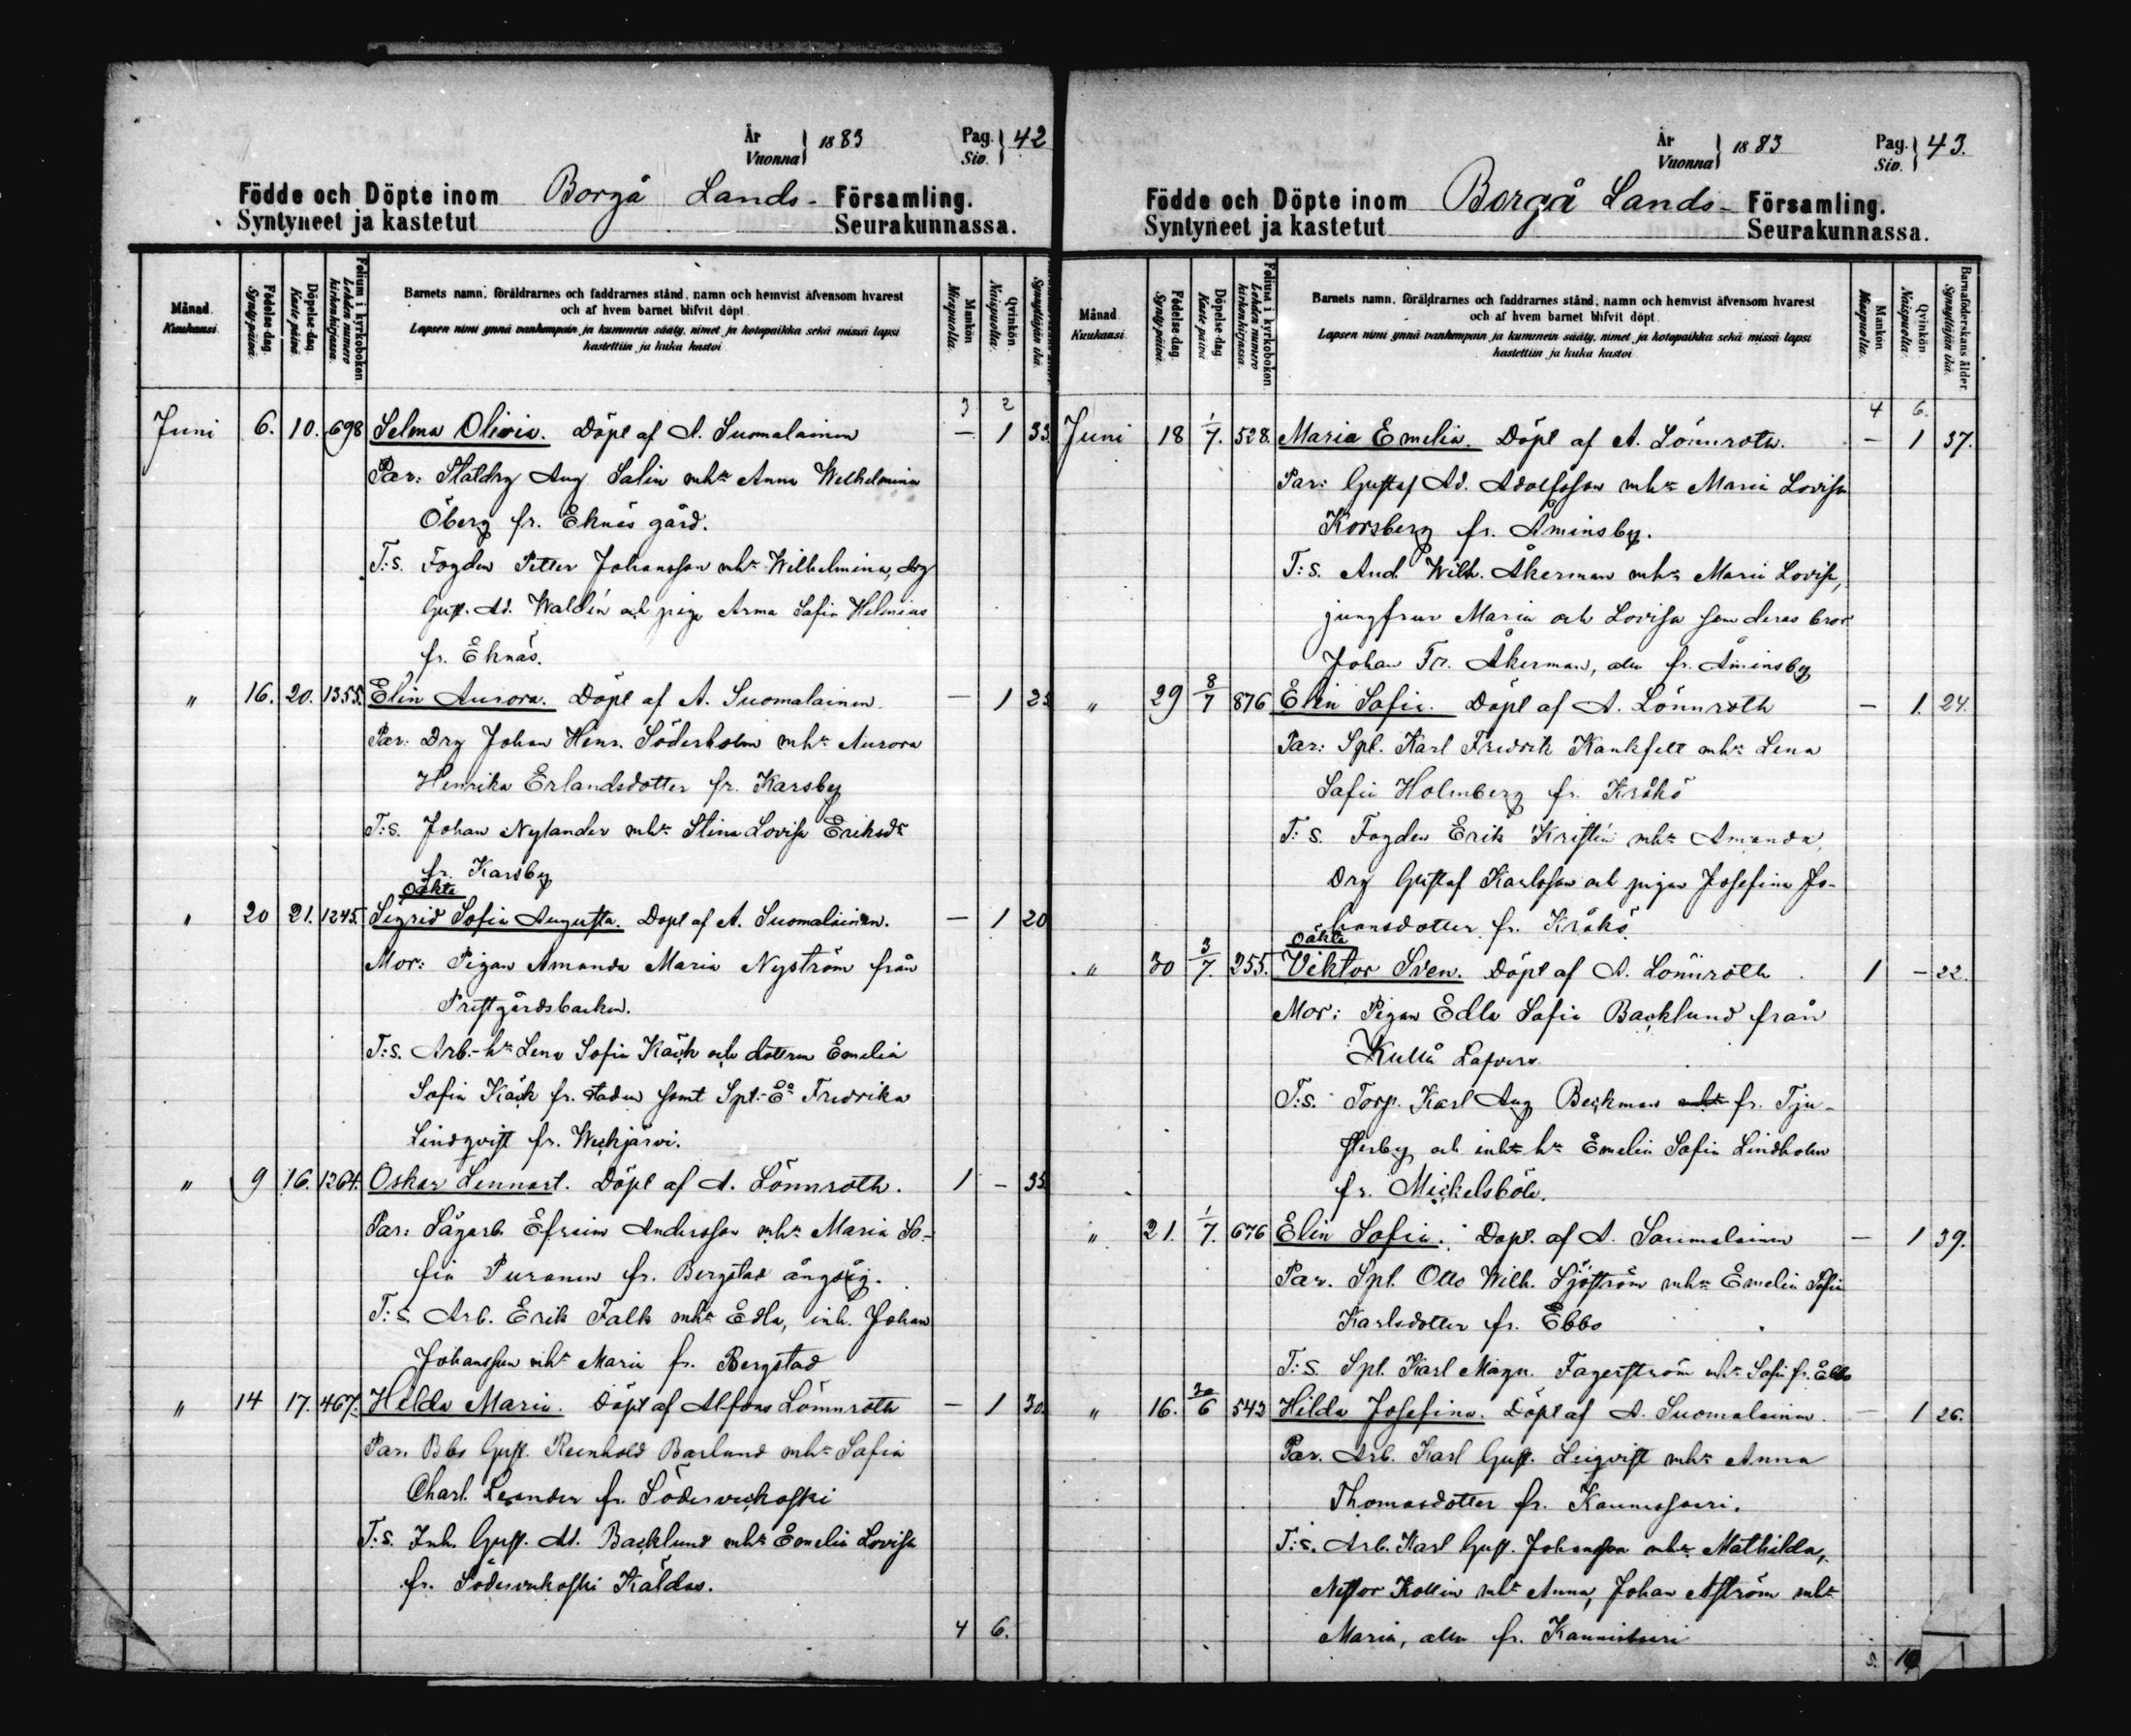 År
Vuonna } 1883
Pag.
Siv. } 42
Födde och Döpte inom Borgå Lands- Församling.
Syntyneet ja kastetut Seurakunnassa.
Månad Kuukausi.
Födelse-dag. Synty-päivä.
Döpelse-dag. Kaste-päivä.
Folium i kyrkoboken Lehden numero kirkonkirjassa.
Barnets namn, föräldrarnes och faddrarnes stånd, namn och hemvist äfvensom hvarest
och af hvem barnet blifvit döpt.
Lapsen nimi ynnä vanhempain ja kummein sääty, nimet ja kotopaikka sekä missä lapsi
kastettiin ja kuka kastoi.
Mankön Miespuolta.
Qvinkön Naispuolta.
Synnyttäjän ikä.
3 2
Juni 6. 10. 698 Selma Olivia. Döpt af A. Suomalainen — 1 33
Par: Staldrg Aug. Salin mhu Anna Wilhelmina
Öberg fr. Eknäs gård.
T:s. Fogden Petter Johansson mhu Wilhelmina, drg
Gust. Ad. Waldén och piga Anna Sofia Helenius
fr. Eknäs.
" 16. 20. 1355. Elin Aurora. Döpt af A. Suomalainen — 1 23
Par: Drg Johan Henr. Söderholm mhu Aurora
Henrika Erlandsdotter fr. Karsby
T:s. Johan Nylander mhu Stina Lovisa Eriksdr
fr. Karsby
Oäkta
" 20 21. 1245. Sigrid Sofia Augusta. Döpt af A. Suomalainen. — 1 20
Mor: Pigan Amanda Maria Nyström från
Prestgårdsbacken.
T:s. Arb.-hu Lena Sofia Käck och dottern Emelia
Sofia Käck fr. staden samt Spt:-Ea Fredrika
Lindqvist fr. Weckjärvi.
" 9 16. 1264. Oskar Lennart. Döpt af A. Lönnroth. 1 — 35
Par: Sågarb. Efraim Andersson mhu Maria So-
fia Puranen fr. Bergstad ångsåg.
T:s. Arb. Erik Falk mhu Edla, inh. Johan
Johansson mhu Maria fr. Bergstad
" 14 17. 467. Hilda Maria. Döpt af Alfons Lönnroth — 1 30.
Par. Bbo Gust. Reinhold Barlund mhu Sofia
Charl. Leander fr. Söderveckoski
T:s. Inh. Gust. Ad. Backlund mhu Emelia Lovisa
fr. Söderveckoski Käldas.
4 6.
År
Vuonna } 1883
Pag.
Siv. } 43.
Födde och Döpte inom Borgå Lands- Församling.
Syntyneet ja kastetut Seurakunnassa.
Månad Kuukausi.
Födelse-dag. Synty-päivä.
Döpelse-dag. Kaste-päivä.
Folium i kyrkoboken Lehden numero kirkonkirjassa.
Barnets namn, föräldrarnes och faddrarnes stånd, namn och hemvist äfvensom hvarest
och af hvem barnet blifvit döpt.
Lapsen nimi ynnä vanhempain ja kummein sääty, nimet ja kotopaikka sekä missä lapsi
kastettiin ja kuka kastoi.
Mankön Miespuolta.
Qvinkön Naispuolta.
Barnaföderskans ålder Synnyttäjän ikä.
4 6.
Juni 18 1/7. 528. Maria Emelia. Döpt af A. Lönnroth. — 1 37.
Par: Gustaf Ad. Adolfsson mhu Maria Lovisa
Korsberg fr. Åminsby.
T:s. And. Wilh. Åkerman mhu Maria Lovisa,
jungfrur Maria och Lovisa sam deras bror
Johan Fr. Åkerman, alla fr. Åminsby
" 29 8/7 876 Elin Sofia. Döpt af A. Lönnroth — 1. 24.
Par: Spt. Karl Fredrik Kankfelt mhu Lena
Sofia Holmberg fr. Kråkö
T:s. Fogden Erik Kristin mhu Amanda,
Drg Gustaf Karlsson och pigan Josefina Jo-
hansdotter fr. Kråkö
Oäkta
" 30 3/7. 255. Viktor Sven. Döpt af A. Lönnroth 1 — 22.
Mor: Pigan Edla Sofia Backlund från
Kullå
T:s. Torp. Karl Aug Beckman fr. Tju-
sterby och inh hu Emelia Sofia Lindholm
fr. Mickelsböle.
" 21. 1/7. 676 Elin Sofia. Döpt. af A. Suomalainen — 1 39.
Par. Spt. Otto Wilh. Sjöström mhu Emelia Sofia
Karlsdotter fr. Ebbo
T:s. Spt. Karl Magn. Fagerström mhu Sofia fr. Ebbo
" 16. 30/6 543 Hilda Josefina. Döpt af A. Suomalainen. — 1 26.
Par. Arb. Karl Gust. Leiqvist mhu Anna
Thomasdotter fr. Kaunissaari.
T:s. Arb. Karl Gust. Johansson mhu Mathilda,
Nestor Kollin mhu Anna, Johan Åström mhu
Maria, alla fr. Kaunissaari
5. 10